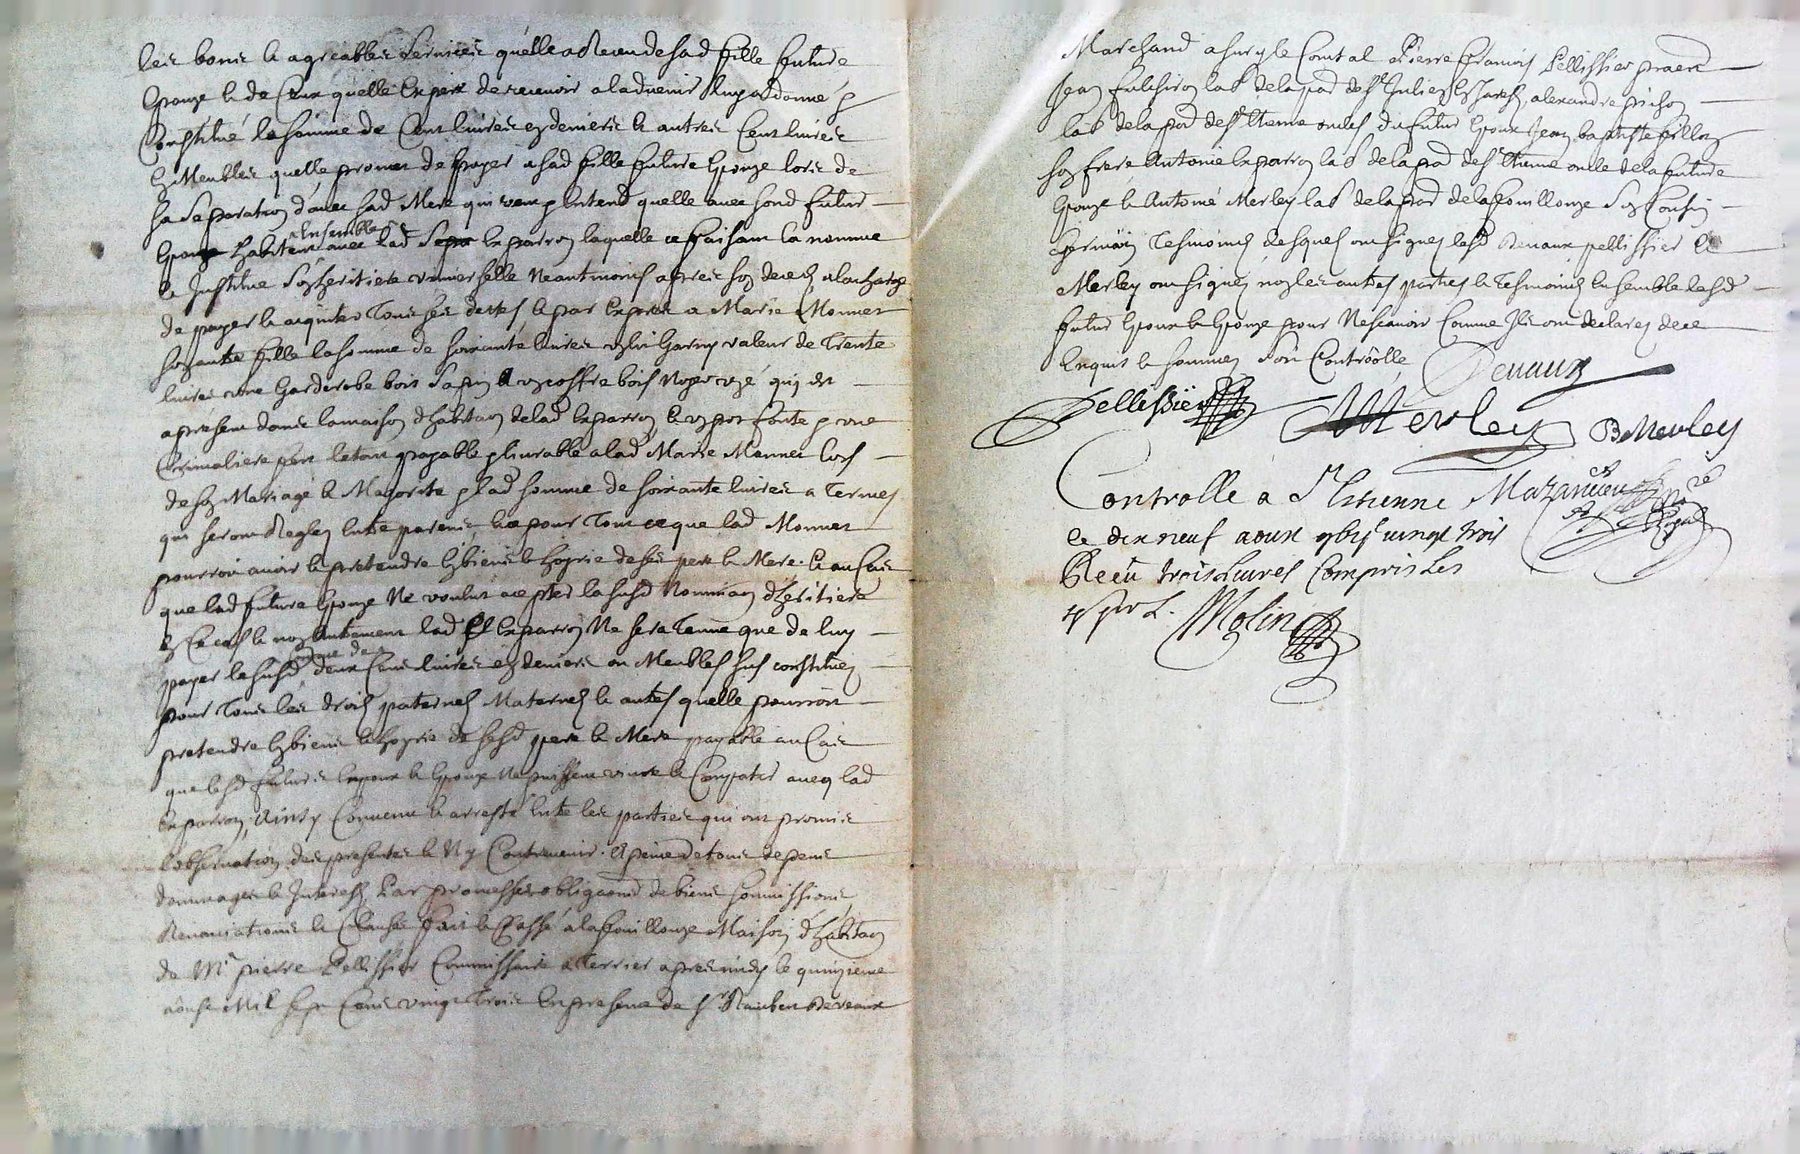 les bons & agreables services quelle a Receu de sad fille future
Epouze & de Ceux quelle Espere de recevoir a ladvenir luy a donné &
Constitué la somme de Cent livres en deniers & autres Cent livres
en Meubles quelle promet de payer a sad fille future Epouze lors de
sa Separation d'avec sad Mere qui veut & entend quelle avec sond futur
Epoux habitent Ensemble avec lad Esparron laquelle ce faisant la nomme
& Institue son heritiere universelle Neantmoins apres son decedz a la charge
de payer & acquiter Tous ses dettes & par Expres a Marie Monnet
fille la somme de soixante livres un lit Garny valeur de Trente
livres une Garderobe bois Sapin & un coffre bois Noyer uzé qui est
apresent dans la maison d'habitaon de lad Esparron & un pot fonte & une
Crimaliere fer letout payable & livrable a lad Marie Monnet lors
de son Mariage & Majorité & lad somme de soixante livres a Termes
qui seront Reglez Entre parents & ce pour Tout ce que lad Monnet
pourroit avoir & pretendre es biens & hoyrie de ses pere & Mere. Et au Cas
que lad future Epouze Ne voulut accepter la susd Nominaon d'heritiere
en Ce cas & non autrement lad Esparron Ne sera Tenue que de luy
payer la susd somme de deux Cens livres en deniers ou Meubles sus constituez
pour Tous les droits paternels Maternels & autres quelle pourroit
pretendre es biens & hoyrie de sesd pere & Mere payable au Cas
que lesd futurs Espoux & Epouze Ne puissent vivre & Compatir avecq lad
Esparron, Ainsy Convenu & arresté Entre les parties qui ont promis
l'observation des presentes & N'y Contrevenir. A peine de tous depens
dommages & Interests, Par promesses obligaons de biens soumissions,
Renonciations & Clauses fait & Passé a lafouillouze Maison d'habitaon
de Mr pierre Pellissier Commissaire a Terrier apres midy le quinzieme
aoust Mil sept Cens vingt Trois En presence de sr Devaux
Marchand a sury le Comtal Pierre francois Pellissier praen
Jean fulchiron lab de la pad de st Julien En Jarest, alexandre pichon
lab de la pad de st Etienne oncles du futur Epoux Jean baptiste fillon
son frere Antoine Esparron lab de la pad de st Etienne oncle de la future
Epouze & Antoine Merley lab de la pad de lafouillouze son Cousin
germain Tesmoins desquels ont signez lesd Devaux pellissier &
Merley ont signez non les autres parties & Tesmoins Ensemble lesd
futur Epoux & Epouze pour Ne scavoir Comme Ils ont declarez de ce
Enquis & sommez Soit Controolle, Devaux
Pellissier Merley B Merley
Controllé a St Etienne Mazanieu
le dix neuf aoust vingt trois
Receu trois livres Compris les
4 s pr L. Molin